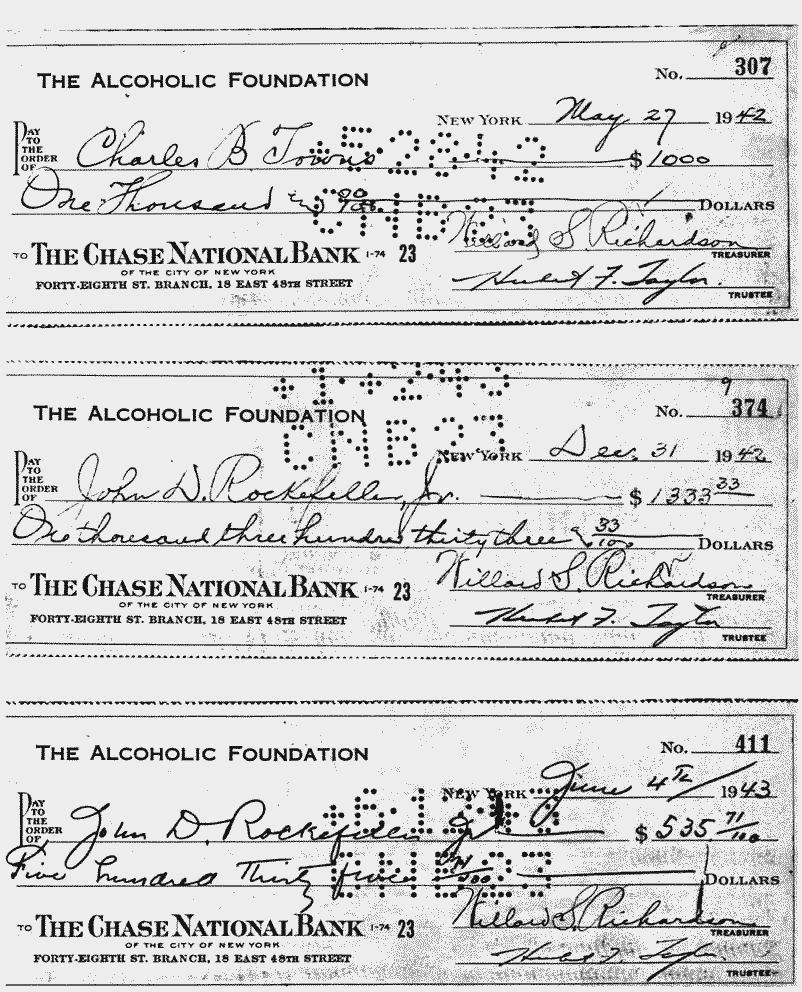 THE ALCOHOLIC FOUNDATION
No. 307
NEW YORK May 27 1942
PAY TO THE ORDER OF Charles B Towns $ 1000
One Thousand 00/100 DOLLARS
+5·28·42
CNB 23
TO THE CHASE NATIONAL BANK 1-74 23
OF THE CITY OF NEW YORK
FORTY-EIGHTH ST. BRANCH, 18 EAST 48TH STREET
Willard S. Richardson
TREASURER
Herbert F. Taylor
TRUSTEE
THE ALCOHOLIC FOUNDATION
9
No. 374
CNB 23
NEW YORK Dec. 31 1942
PAY TO THE ORDER OF John D. Rockefeller, Jr. $ 1333 33
One thousand three hundred thirty three & 33/100 DOLLARS
TO THE CHASE NATIONAL BANK 1-74 23
OF THE CITY OF NEW YORK
FORTY-EIGHTH ST. BRANCH, 18 EAST 48TH STREET
Willard S. Richardson
TREASURER
Herbert F. Taylor
TRUSTEE
THE ALCOHOLIC FOUNDATION
No. 411
NEW YORK June 4th 1943
PAY TO THE ORDER OF John D. Rockefeller Jr $ 535 71/100
Five hundred Thirty five 71/100 DOLLARS
CNB 23
TO THE CHASE NATIONAL BANK 1-74 23
OF THE CITY OF NEW YORK
FORTY-EIGHTH ST. BRANCH, 18 EAST 48TH STREET
Willard S. Richardson
TREASURER
Herbert F. Taylor
TRUSTEE